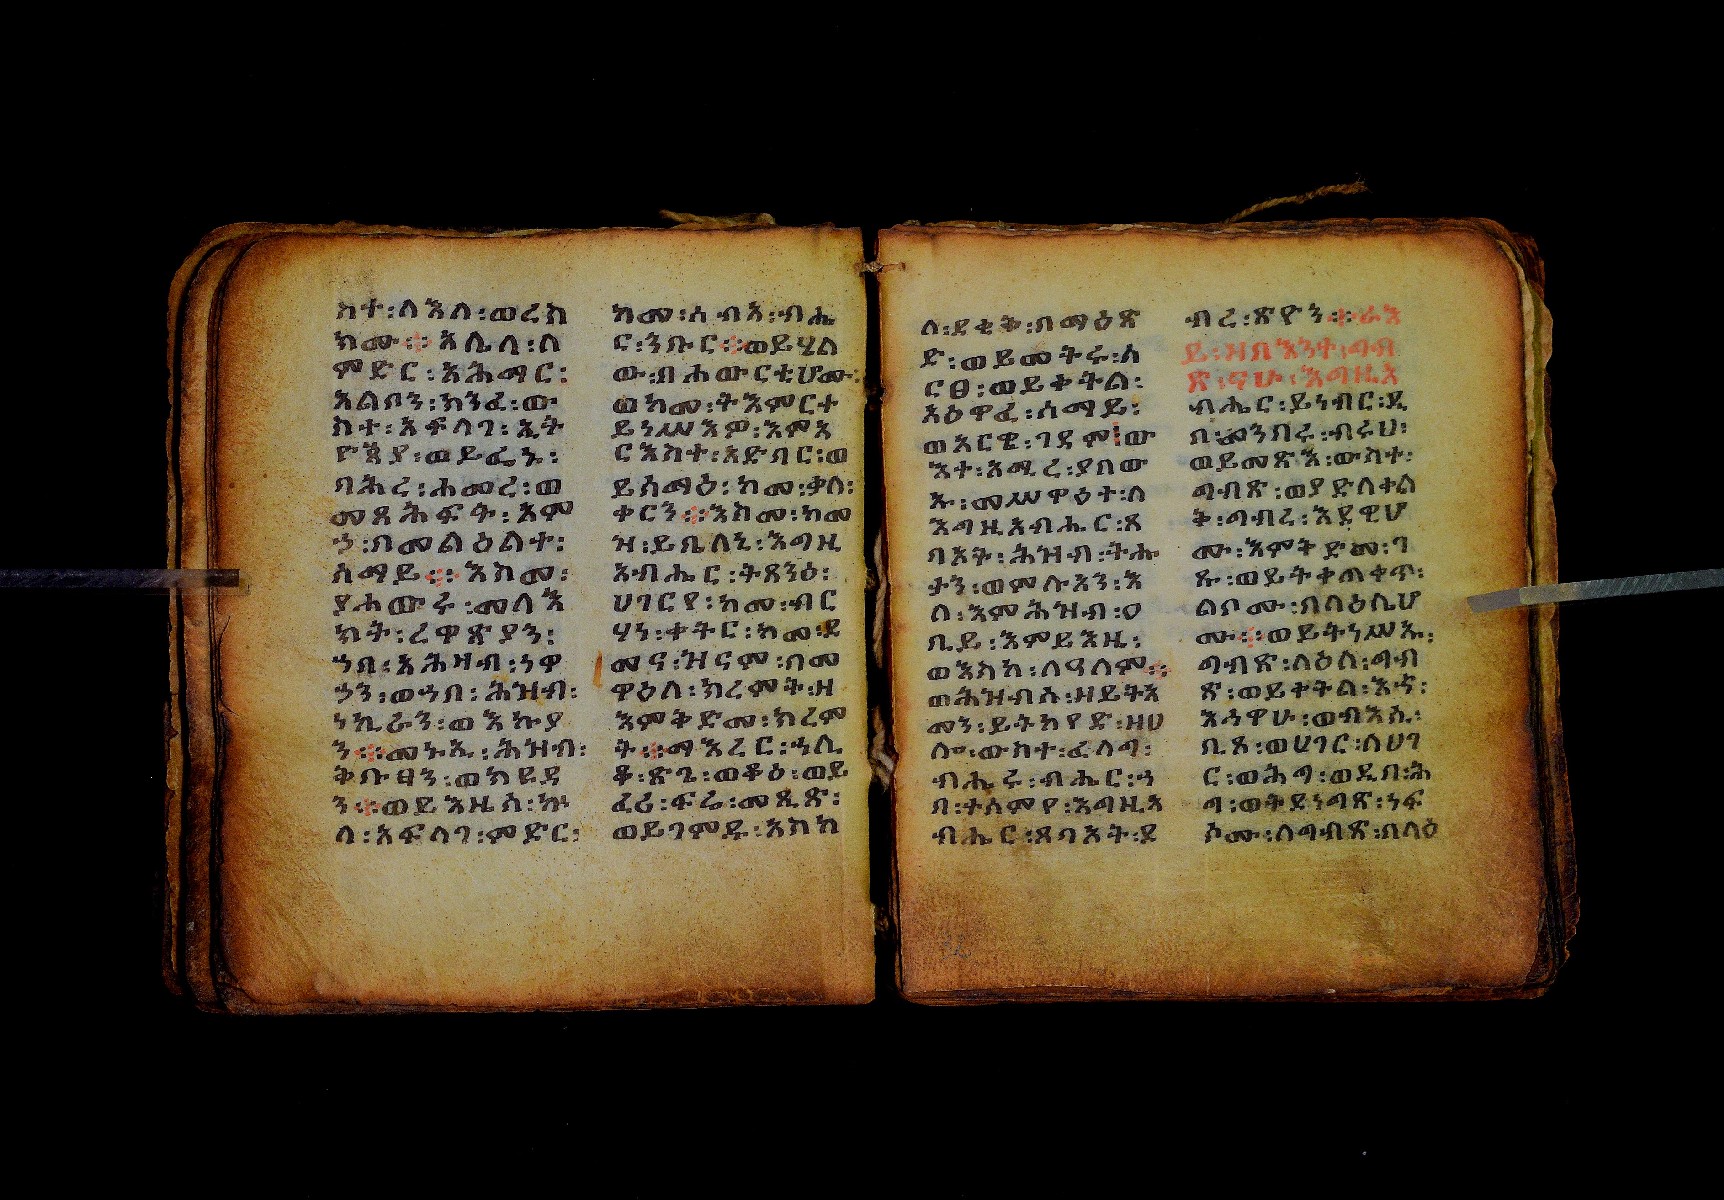 ከተ፡ለእለ፡ወረከ
ክሙ፡፡አሌላ፡ለ
ምድር፡አሕማር፡
እልቦን፡ክንፈ፡ው
ስተ፡አፍላገ፡ኢት
ዮጵያ፡ወይፌኑ፡
ባሕረ፡ሐመረ፡ወ
መጸሕፍት፡እም
ኃ፡በመልዕልተ፡
ሰማይ፡፡እስመ፡
ያሐውሩ፡መለእ
ክት፡ረዋጽያን፡
ኀበ፡አሕዛብ፡ነዋ
ኃን፡ወኀበ፡ሕዝብ፡
ነኪራን፡ወእኩያ
ን፡፡መኑኢ፡ሕዝብ፡
ቅቡፀን፡ወክይዳ
ን፡፡ወይእዜሰ፡ኵ
ላ፡አፍላገ፡ምድር፡
ከመ፡ሰብእ፡ብሔ
ር፡ንቡር፡፡ወይሄለ
ው፡ብሐውርቲሆሙ፡
ወከመ፡ትእምርተ
ይነሥእዎ፡እምእ
ርእስተ፡አድባር፡ወ
ይሰማዕ፡ከመ፡ቃለ፡
ቀርን፡፡እስመ፡ከመ
ዝ፡ይቤለኒ፡እግዚ
አብሔር፡ትጸንዕ፡
ሀገርየ፡ከመ፡ብር
ሃነ፡ቀትር፡ከመ፡ደ
መና፡ዝናም፡በመ
ዋዕለ፡ክረምት፡ዘ
እምቅድመ፡ክረም
ት፡፡ማእረር፡ኀሊ
ቆ፡ጽጌ፡ወቆዕ፡ወይ
ፈሪ፡ፍሬ፡መጺጽ፡
ወይገምዱ፡አስከ
ለ፡ደቂቅ፡በማዕጽ
ድ፡ወይመትሩ፡ሰ
ርፀ፡ወይቀትል፡
አዕዋፈ፡ሰማይ፡
ወአርዌ፡ገዳም፡ው
እተ፡አሚረ፡ያበው
ኡ፡መሥዋዕተ፡ለ
እግዚአብሔር፡ጸ
ባኦት፡ሕዝብ፡ትሑ
ታን፡ወምሉአን፡እ
ለ፡እምሕዝብ፡ዐ
ቢይ፡እምይእዜ፡
ወእስከ፡ለዓለም፡፡
ወሕዝብሰ፡ዘይትአ
መን፡ይትከየድ፡ዘሀ
ሎ፡ውስተ፡ፈለግ፡
ብሔሩ፡ብሔር፡ኀ
በ፡ተሰምየ፡እግዚአ
ብሔር፡ጸባኦት፡ደ
ብረ፡ጽዮን፡፡ራእ
ይ፡ዘበእንተ፡ግብ
ጽ፡ናሁ፡እግዚአ
ብሔር፡ይነብር፡ዲ
በ፡መንበሩ፡ብሩህ፡
ወይመጽእ፡ውስተ፡
ግብጽ፡ወያድለቀል
ቅ፡ግብረ፡እደዊሆ
ሙ፡እምቅድመ፡ገ
ጹ፡ወይትቀጠቀጥ፡
ልቦሙ፡በላዕሌሆ
ሙ፡፡ወይትነሥኡ፡
ግብጽ፡ለዕለ፡ግብ
ጽ፡ወይቀትል፡እኁ፡
እኃዋሁ፡ወብእሲ፡
ቢጾ፡ወሀገር፡ለሀገ
ር፡ወሕግ፡ወዲበ፡ሕ
ግ፡ወትደነግጽ፡ነፍ
ሶሙ፡ለግብጽ፡በላዕ